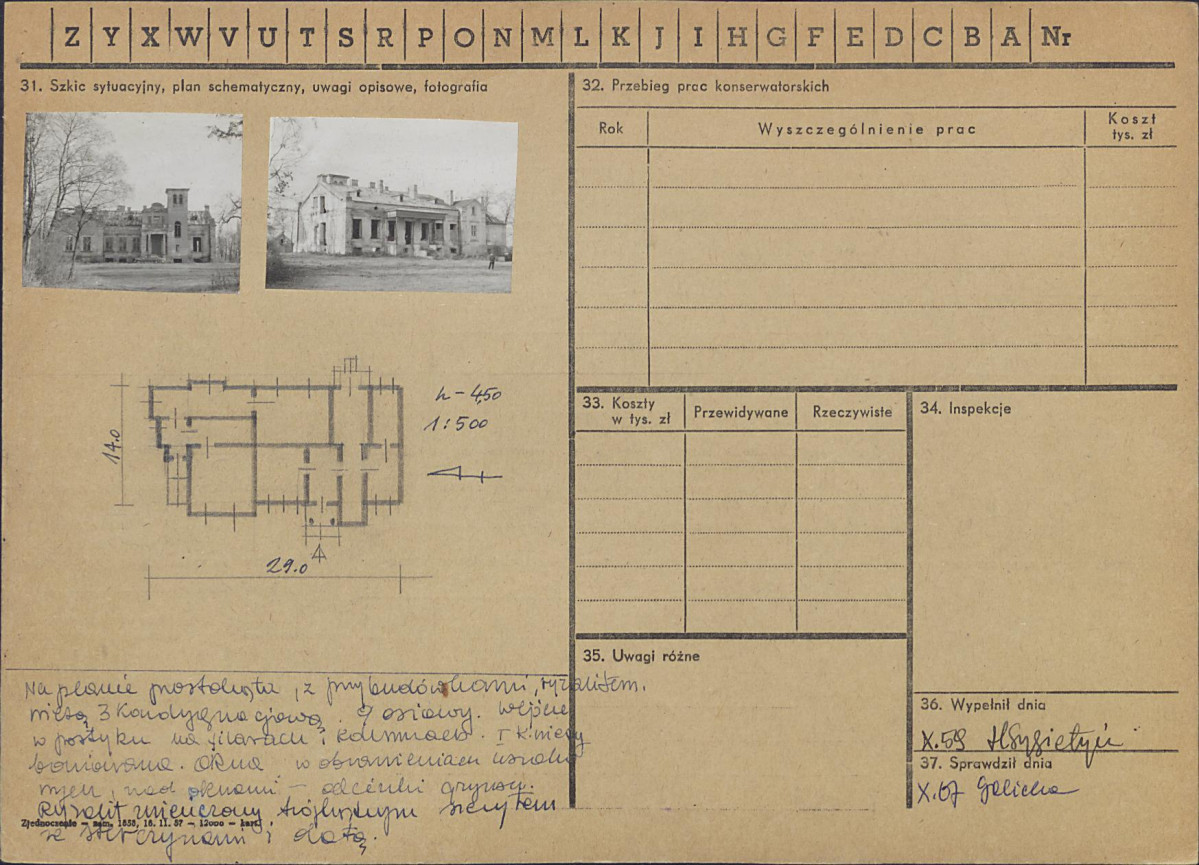 Z Y X W V U T S R P O N M L K J I H G F E D C B A Nr
31. Szkic sytuacyjny, plan schematyczny, uwagi opisowe, fotografia
h - 4,50
1:500
14.0
29.0
Na planie prostokąta, z przybudówkami, ryzalitem.
wieżą 3 kondygnacjową. 9 osiowy. Wejście
w portyku na filarach i kolumnach. I
boniowana. Okna w obramieniach
nad oknami - odcinki gzymsu.
Ryzalit zwieńczony trójkątnym szczytem
ze sterczynami i datą.
Zjednoczenie - zam. 1658, 16. 11. 57 - 12000 - kart.
32. Przebieg prac konserwatorskich
Rok
Wyszczególnienie prac
Koszt
tys. zł
33. Koszty
w tys. zł
Przewidywane
Rzeczywiste
34. Inspekcje
35. Uwagi różne
36. Wypełnił dnia
X.59
37. Sprawdził dnia
X.67 Galicka